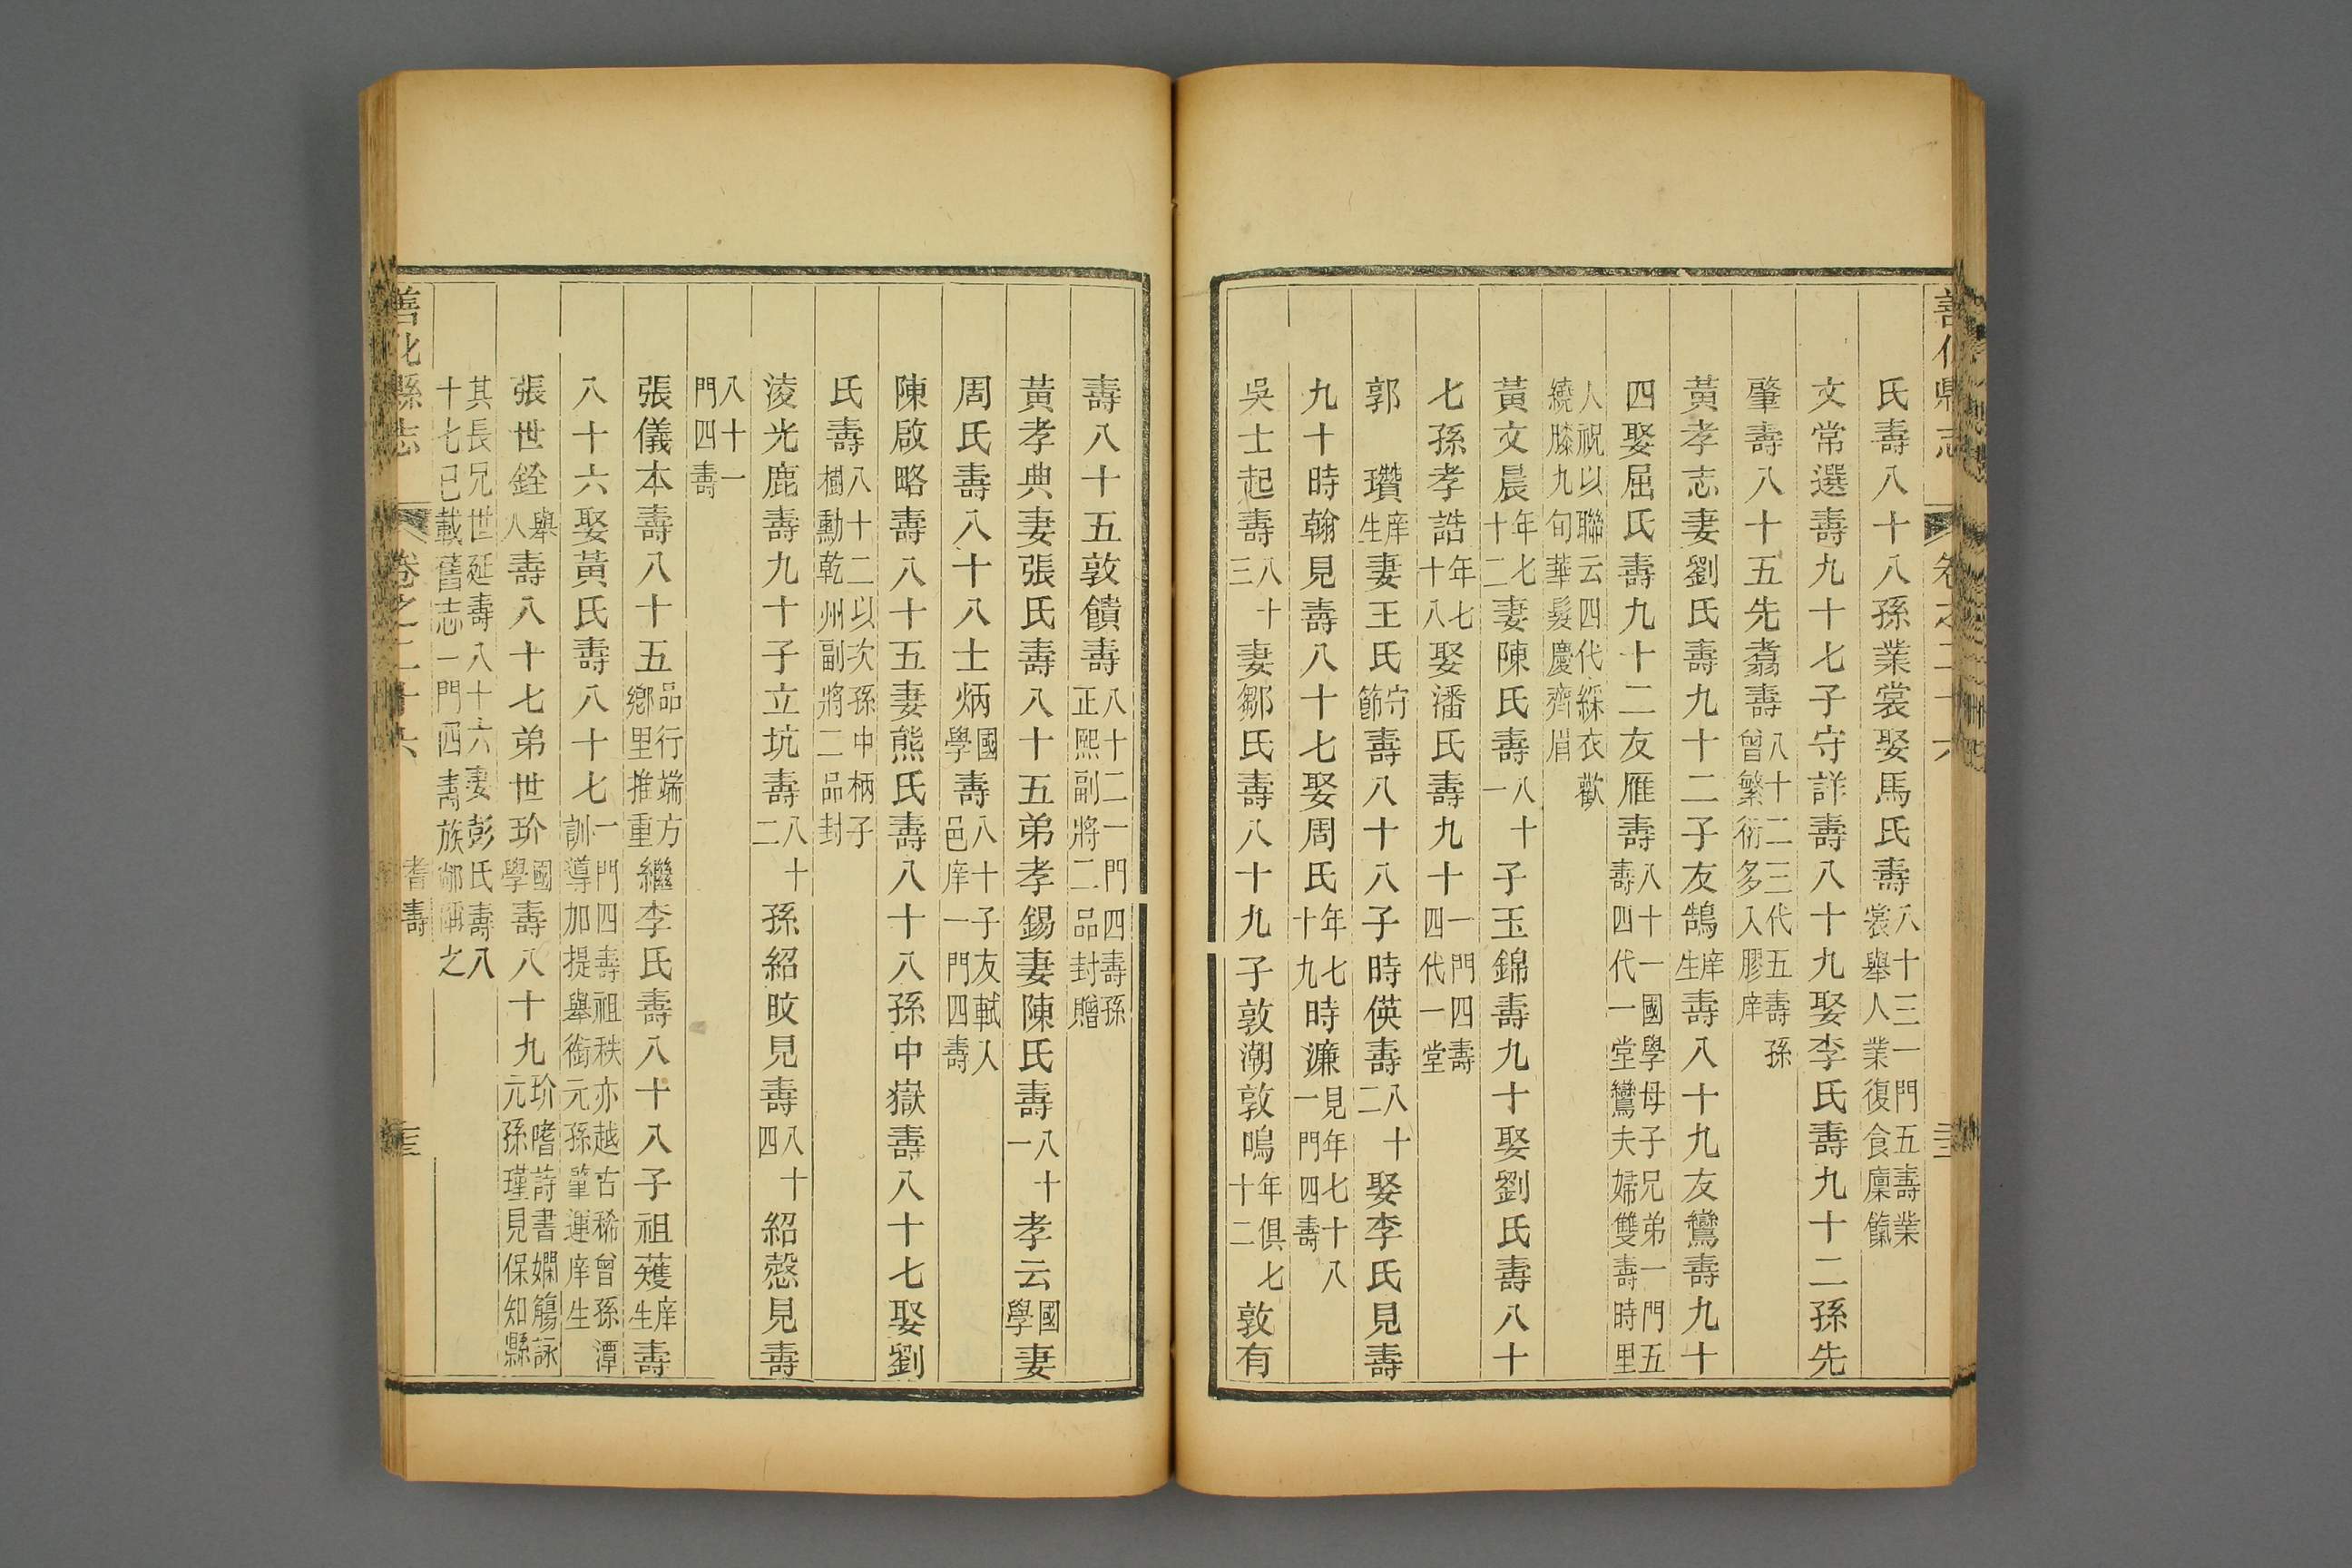 善化縣志 卷之二十六 三十二
氏壽八十八孫業裳娶馬氏壽八十三一門五壽業裳舉人業復食廩餼
文常選壽九十七子守詳壽八十九娶李氏壽九十二孫先
肇壽八十五先翥壽八十二三代五壽孫曾繁衍多入膠庠
黃孝志妻劉氏壽九十二子友鵠庠生壽八十九友鸞壽九十
四娶屈氏壽九十二友雁壽八十一國學母子兄弟一門五壽四代一堂鸞夫婦雙壽時里
人祝以聯云四代綵衣歡繞膝九旬華髮慶齊眉
黃文晨年七十二妻陳氏壽八十一子玉錦壽九十娶劉氏壽八十
七孫孝誥年七十八娶潘氏壽九十一門四壽四代一堂
郭瓚庠生妻王氏守節壽八十八子時偀壽八十二娶李氏見壽
九十時翰見壽八十七娶周氏年七十九時濂見年七十八一門四壽
吳士起壽八十三妻鄒氏壽八十九子敦潮敦鳴年俱七十二敦有
壽八十五敦饋壽八十二一門四壽孫正熙副將二品封贈
黃孝典妻張氏壽八十五弟孝錫妻陳氏壽八十一孝云國學妻
周氏壽八十八士炳國學壽八十子友軾入邑庠一門四壽
陳啟略壽八十五妻熊氏壽八十八孫中嶽壽八十七娶劉
氏壽八十二以次孫中柄子樹勳乾州副將二品封
淩光鹿壽九十子立坑壽八十二孫紹旼見壽八十四紹慤見壽
八十一門四壽
張儀本壽八十五品行端方鄉里推重繼李氏壽八十八子祖蒦庠生壽
八十六娶黃氏壽八十七一門四壽祖秩亦越古稀曾孫潭訓導加提舉銜元孫肇運庠生
張世銓舉人壽八十七弟世玠國學壽八十九玠嗜詩書嫻觴詠元孫瑾見保知縣
其長兄世延壽八十六妻彭氏壽八十七已載舊志一門四壽族鄰稱之
善化縣志 卷之二十六 耆壽 三十三